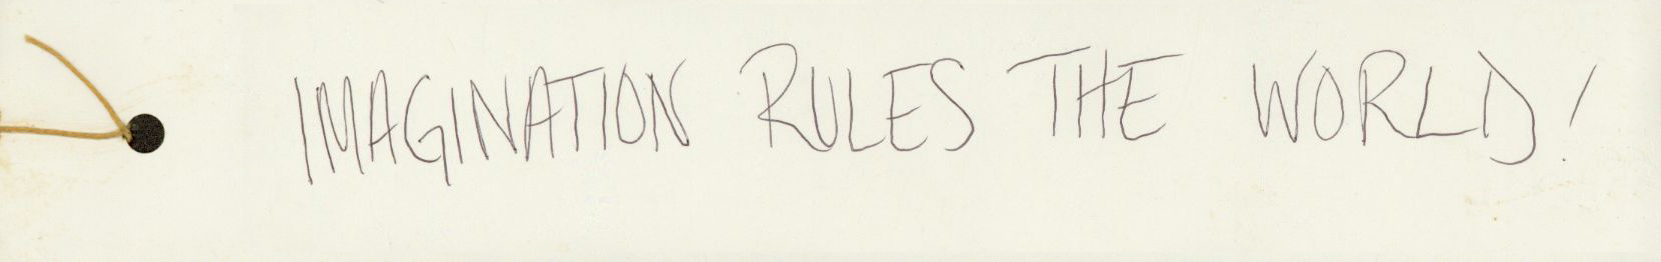 IMAGINATION RULES THE WORLD!